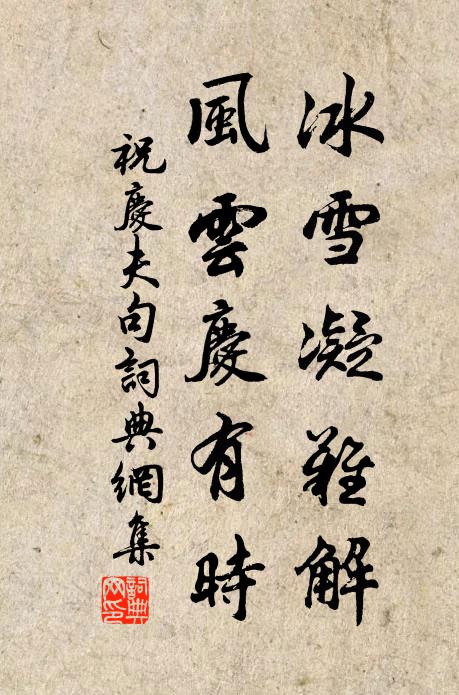 冰雪凝難解
風雲慶有時
祝慶夫句詞典網集
詞典網印